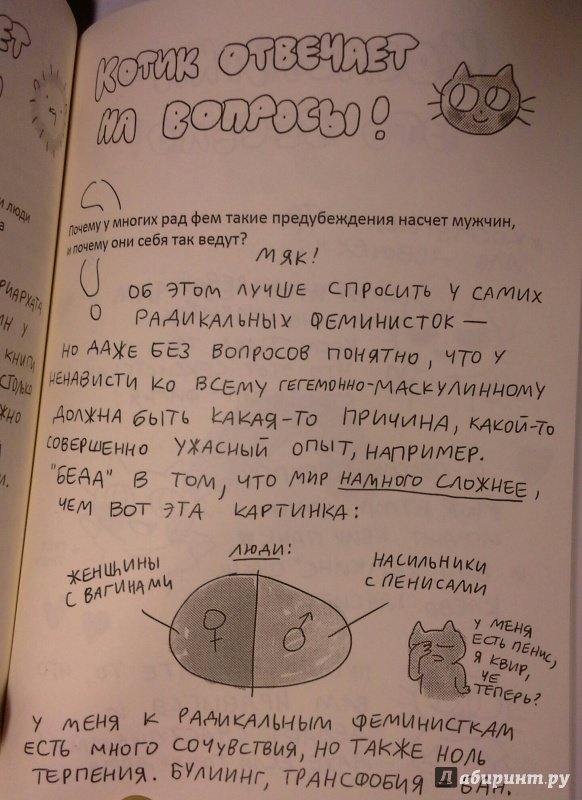 КОТИК ОТВЕЧАЕТ
НА ВОПРОСЫ!
Почему у многих рад фем такие предубеждения насчет мужчин,
и почему они себя так ведут?
МЯК!
ОБ ЭТОМ ЛУЧШЕ СПРОСИТЬ У САМИХ
РАДИКАЛЬНЫХ ФЕМИНИСТОК —
НО ДАЖЕ БЕЗ ВОПРОСОВ ПОНЯТНО, ЧТО У
НЕНАВИСТИ КО ВСЕМУ ГЕГЕМОННО-МАСКУЛИННОМУ
ДОЛЖНА БЫТЬ КАКАЯ-ТО ПРИЧИНА, КАКОЙ-ТО
СОВЕРШЕННО УЖАСНЫЙ ОПЫТ, НАПРИМЕР.
"БЕДА" В ТОМ, ЧТО МИР НАМНОГО СЛОЖНЕЕ,
ЧЕМ ВОТ ЭТА КАРТИНКА:
ЛЮДИ:
ЖЕНЩИНЫ
С ВАГИНАМИ
НАСИЛЬНИКИ
С ПЕНИСАМИ
♀ ♂
У МЕНЯ
ЕСТЬ ПЕНИС,
Я КВИР,
ЧЕ
ТЕПЕРЬ?
У МЕНЯ К РАДИКАЛЬНЫМ ФЕМИНИСТКАМ
ЕСТЬ МНОГО СОЧУВСТВИЯ, НО ТАКЖЕ НОЛЬ
ТЕРПЕНИЯ. БУЛИИНГ, ТРАНСФОБИЯ
Лабиринт.ру
люди
КНИГИ